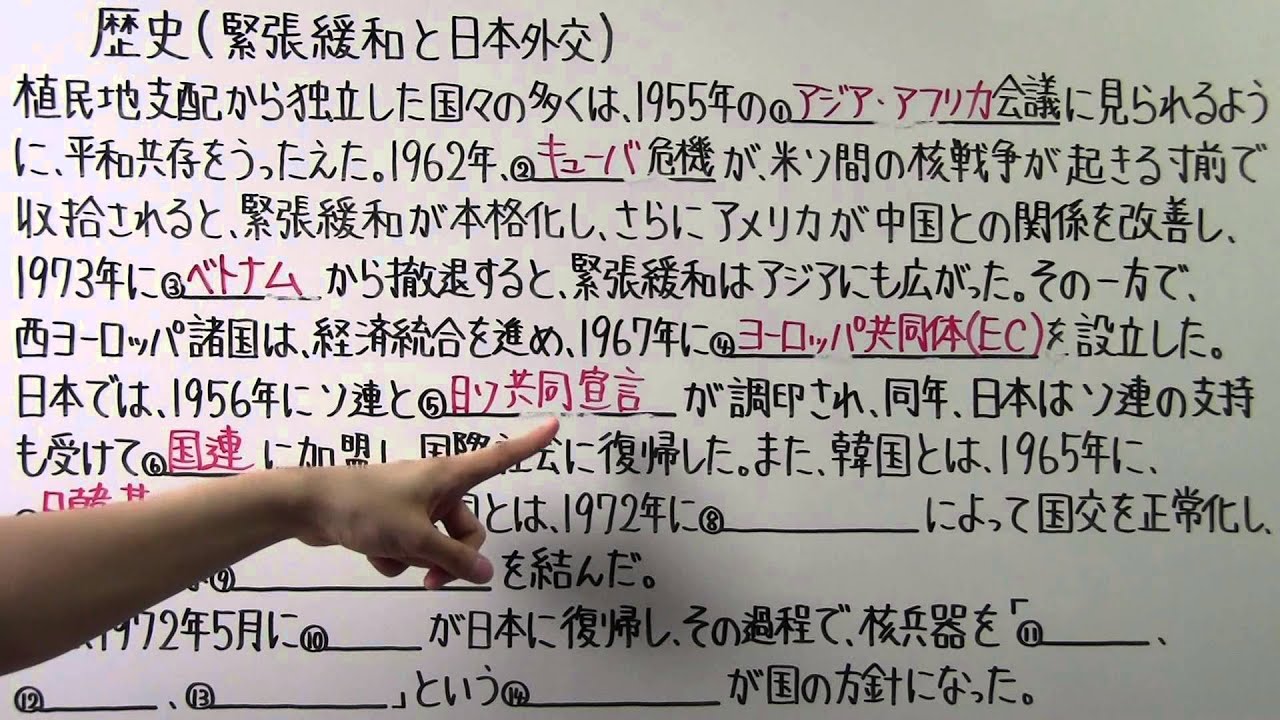 歴史(緊張緩和と日本外交)
植民地支配から独立した国々の多くは、1955年の①アジア・アフリカ会議に見られるよう
に、平和共存をうったえた。1962年、②キューバ危機が、米ソ間の核戦争が起きる寸前で
収拾されると、緊張緩和が本格化し、さらにアメリカが中国との関係を改善し、
1973年に③ベトナムから撤退すると、緊張緩和はアジアにも広がった。その一方で、
西ヨーロッパ諸国は、経済統合を進め、1967年に④ヨーロッパ共同体(EC)を設立した。
日本では、1956年にソ連と⑤日ソ共同宣言が調印され、同年、日本はソ連の支持
も受けて⑥国連に加盟し、国際社会に復帰した。また、韓国とは、1965年に、
日韓基 とは、1972年に⑧ によって国交を正常化し、
⑨ を結んだ。
1972年5月に⑩ が日本に復帰し、その過程で、核兵器を「⑪ 、
⑫ 、⑬ 」という⑭ が国の方針になった。